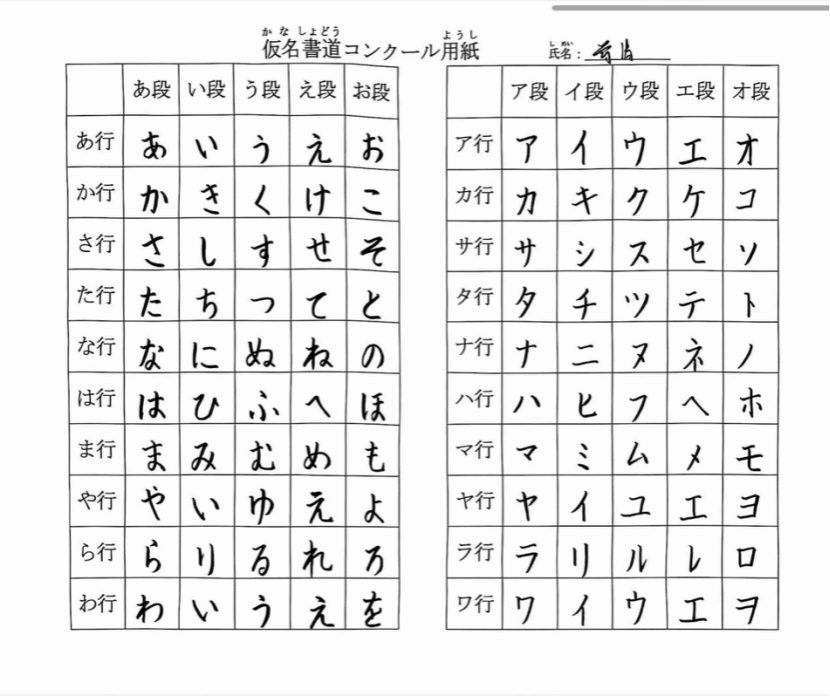 かな しょどう ようし
仮名書道コンクール用紙 氏名:
あ段 い段 う段 え段 お段
あ行 あ い う え お
か行 か き く け こ
さ行 さ し す せ そ
た行 た ち つ て と
な行 な に ぬ ね の
は行 は ひ ふ へ ほ
ま行 ま み む め も
や行 や い ゆ え よ
ら行 ら り る れ ろ
わ行 わ い う え を
ア段 イ段 ウ段 エ段 オ段
ア行 ア イ ウ エ オ
カ行 カ キ ク ケ コ
サ行 サ シ ス セ ソ
タ行 タ チ ツ テ ト
ナ行 ナ ニ ヌ ネ ノ
ハ行 ハ ヒ フ ヘ ホ
マ行 マ ミ ム メ モ
ヤ行 ヤ イ ユ エ ヨ
ラ行 ラ リ ル レ ロ
ワ行 ワ イ ウ エ ヲ